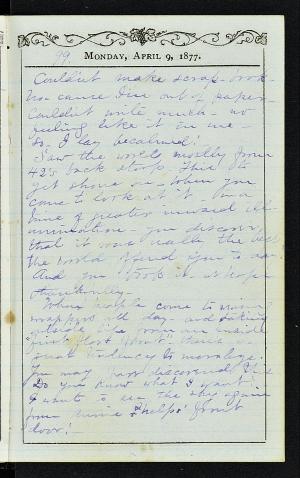 99
MONDAY, APRIL 9, 1877.
Couldn't make scrap-book
no cause I'm out of paper
Couldn't write much - no
feeling like it in me -
So I lay becalmed!
Saw the world mostly from
425 back stoop. This
get shone on - When you
come to look at it - in a
time of greater inward ill-
umination - you discover
that it was really the best
the world offered you to day
And you took it, I hope
thankfully.
When people come to
wrappers all day - and taking
outside life from an inside
"first floor front" there's a
great tendency to moralize.
You may have discovered this
Do you know what I want?
I want to see the sky again
from Annie Phelps' front
door! -